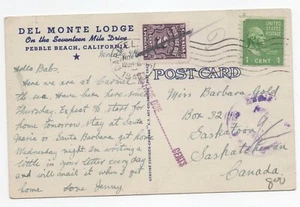 DEL MONTE LODGE
On the Seventeen Mile Drive
PEBBLE BEACH, CALIFORNIA
Hello Babs.
Here we are at Carmel
Have been here since
Thursday. Expect to start for
home tomorrow, stay at Santa
Maria or Santa Barbara get home
Wednesday. Am writing a
little in your letter every day
and will mail it when I get
home Love Jenny
POST CARD
1 CENT 1
Miss Barbara Gold
Box 321
Saskatoon
Saskatchewan
Canada
DUE
CENTS